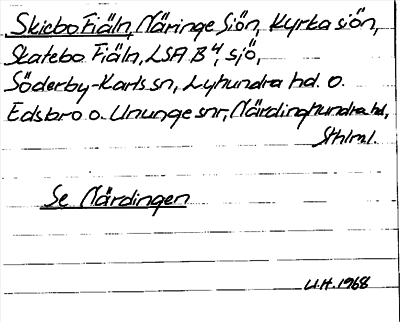 Skiebo Fiäln, Näringe Siön, Kyrka siön,
Skatebo Fiäln, LSA B⁴, sjö,
Söderby-Karls sn, Lyhundra hd. o.
Edsbro o. Ununge snr, Närdinghundra hd,
Sthlm l.
Se Närdingen
U.H. 1968